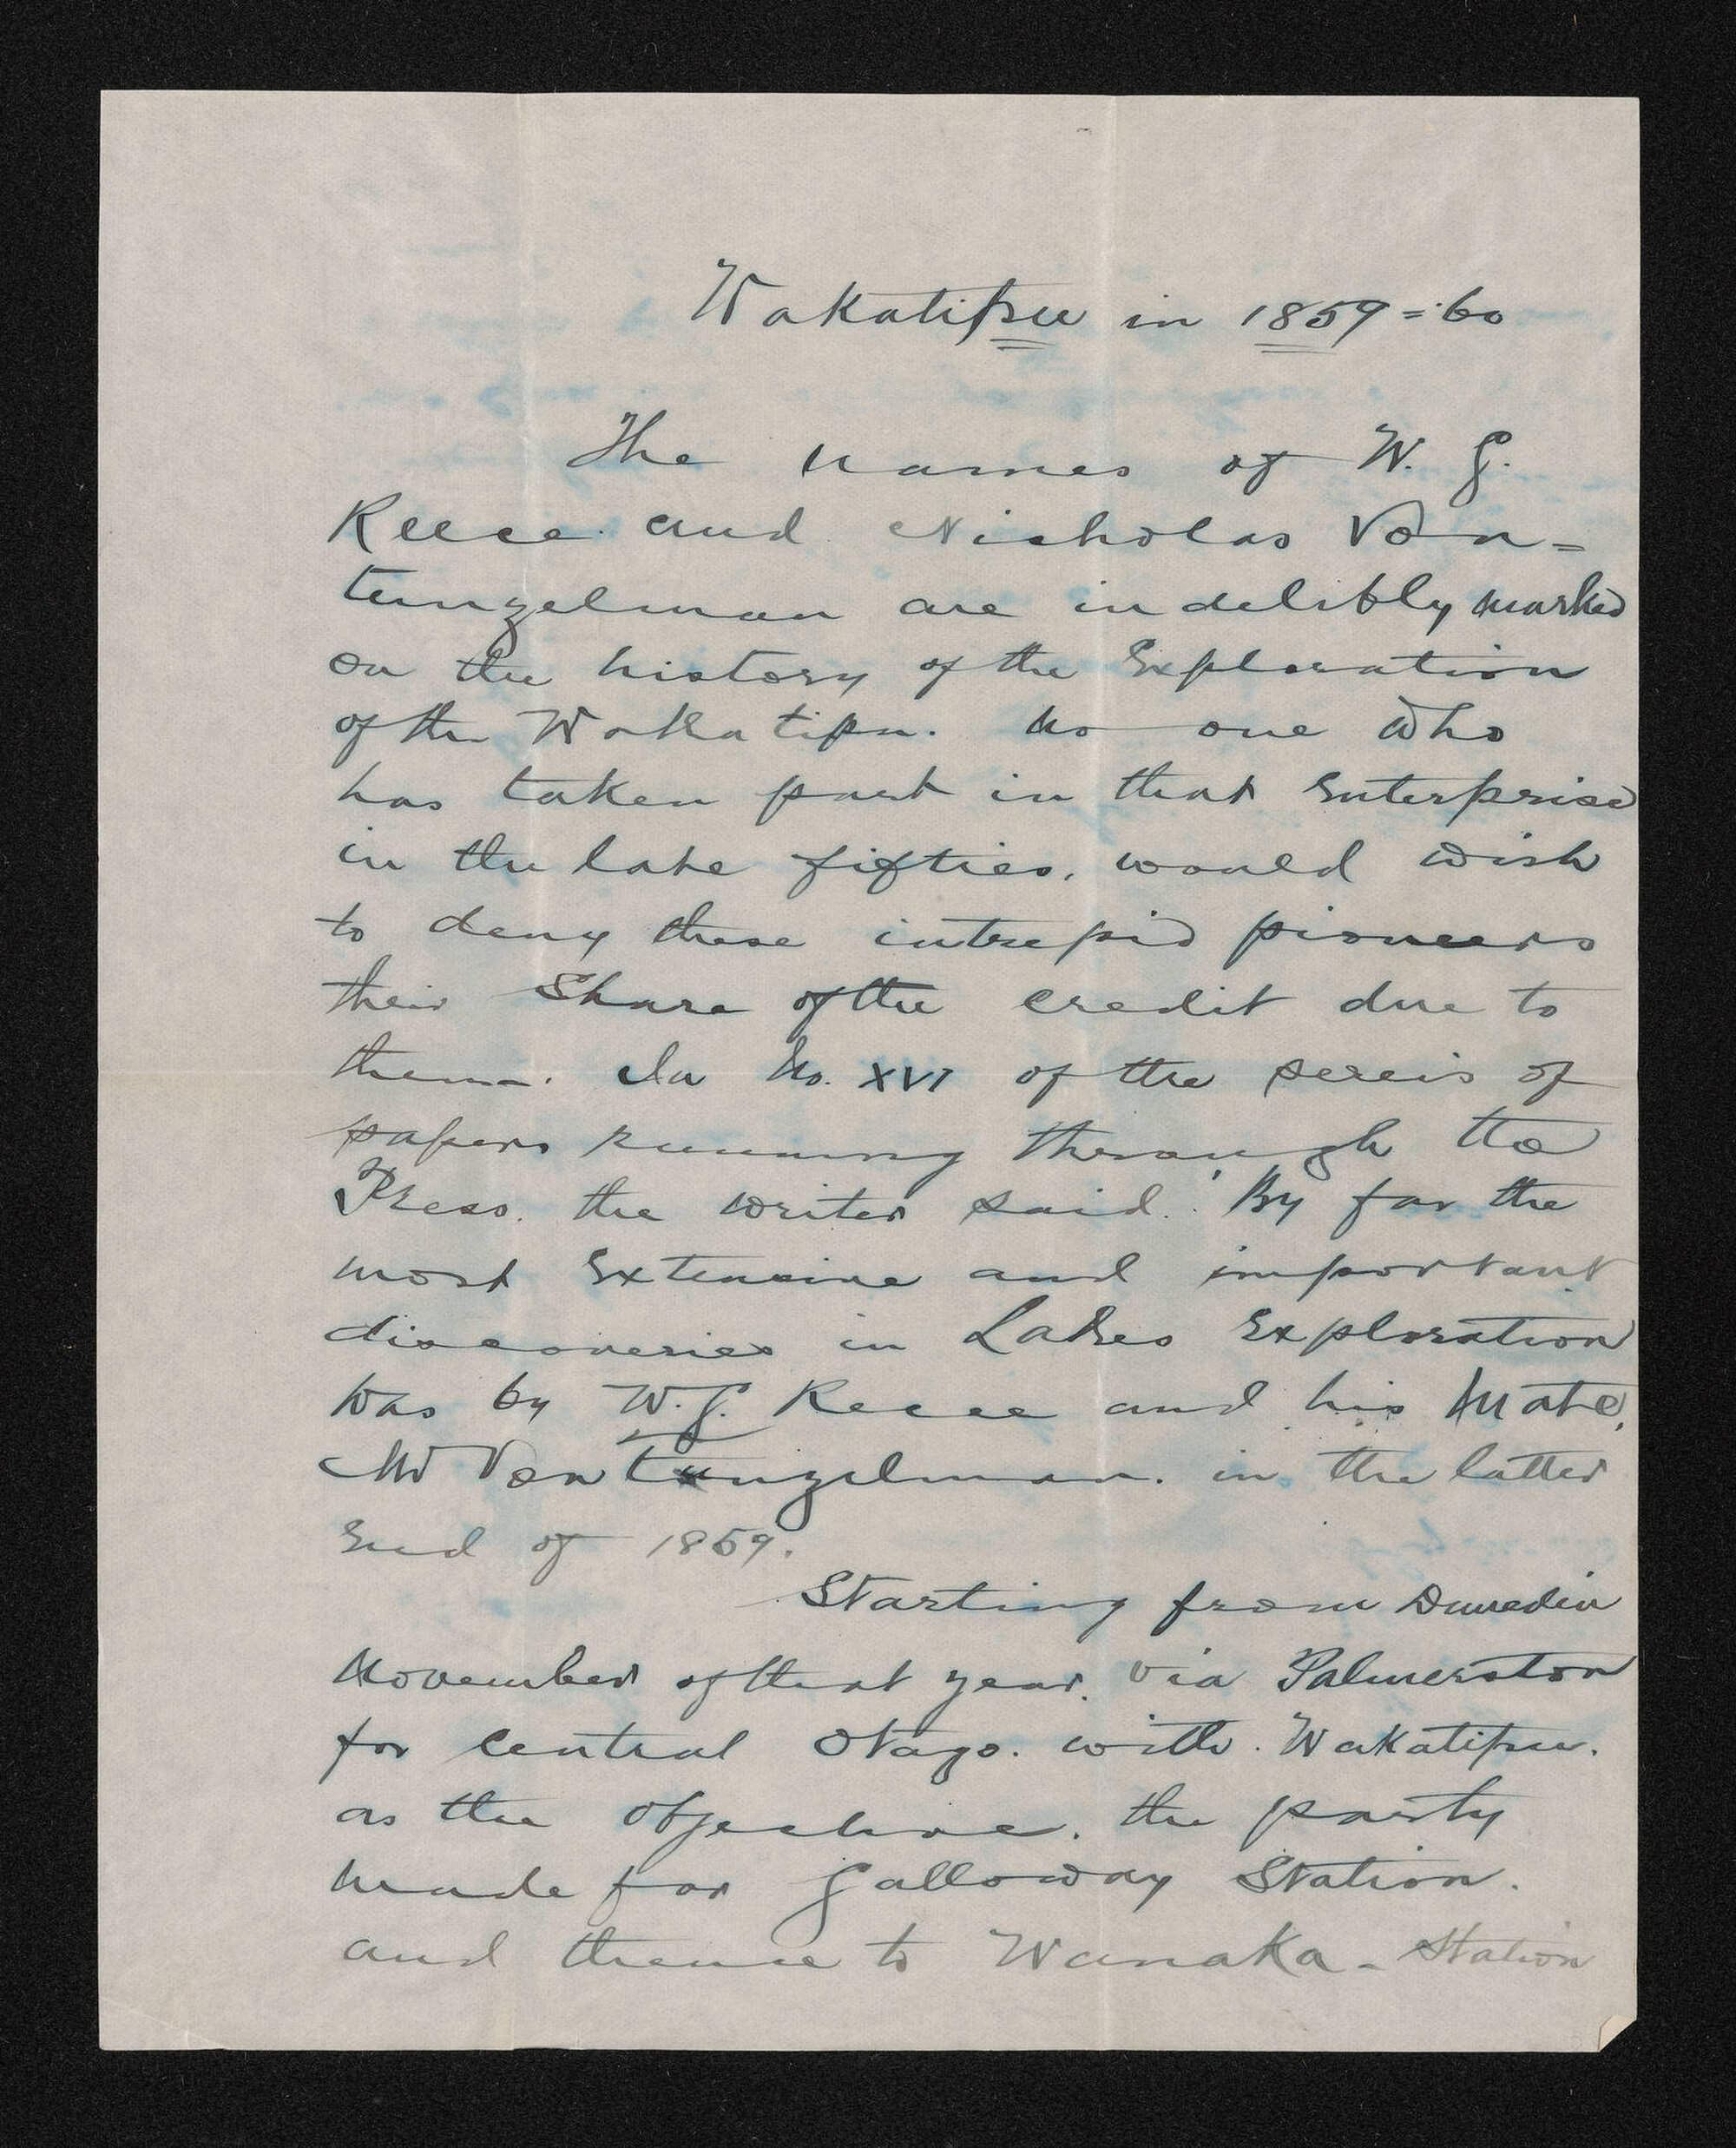 Wakatipu in 1859=60
The names of W. G.
Reece and Nicholas Von=
tunzelman are indelibly marked
on the history of the Exploration
of the Wakatipu. No one who
has taken part in that Enterprise
in the late fifties, would wish
to deny these intrepid pioneers
their Share of the credit due to
them. In No. XVI of the sereis of
papers running through the
Press. the writer said. 'By far the
most Extensive and important
discoveries in Lakes Exploration
was by W.G. Reece and his Mate,
Mr Von tunzelman. in the latter
End of 1859.
Starting from Dunedin
November of that year. via Palmerston
for Central Otago. with. Wakatipu.
as the Objective. the party
made for Galloway Station.
and thence to Wanaka - Station